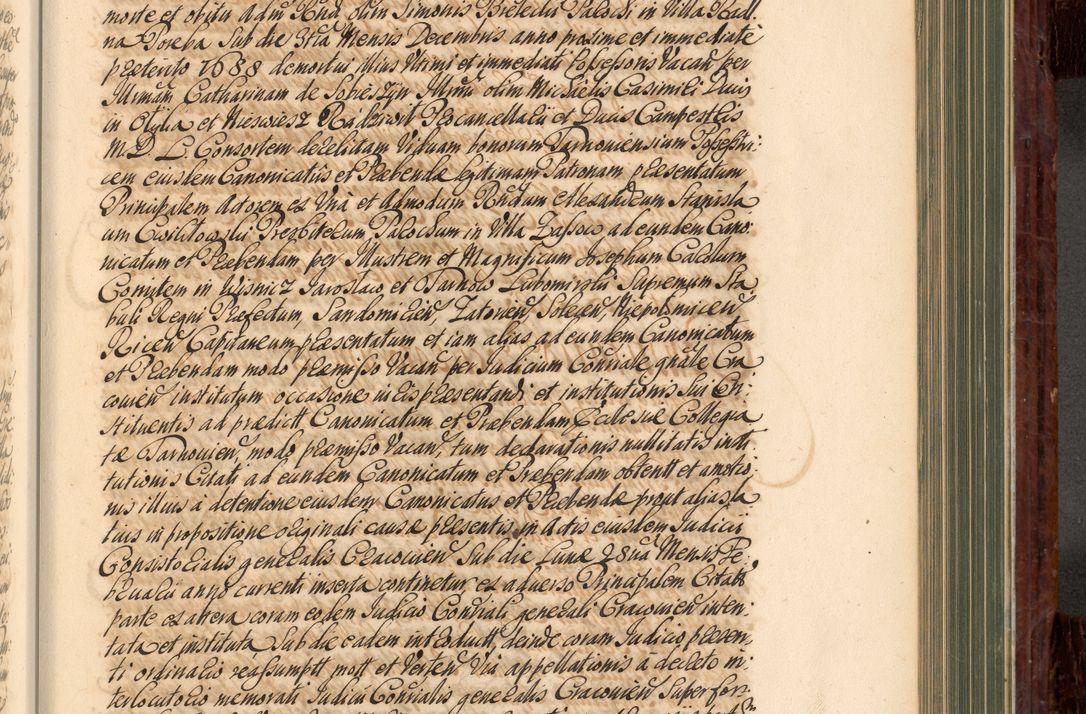 morte et obitu Adm Rndi olim Simonis Bretcki Parochi in Villa
na Poręba Sub die 3tia Mensis Decembris anno proxime et immediate
præterito 1688 demortui illius Ultimi et immediati Possessoris Vacan per
Illrmam Catharinam de Sobieszyn Illrmi olim Michælis Casimiri Ducis
in Olyka et Nieswiesz Radziwił Procancellarii et Ducis Campestris
M. D. L. Consortem derelictam Viduam bonorum Tarnoviensium Possestri-
cem eiusdem Canonicatus et Præbendæ legitimam Patronam præsentatum
Principalem Actorem ex Una et Admodum Rndum Alexandrum Stanisla
um Presbiterum Parochum in Villa Zassow ad eundem Cano-
nicatum et Præbendam per Illustrem et Magnificum Josephum Carolum
Comitem in Wisnicz Jaroslaw et Tarnow Lubomirski Supremum Sta
buli Regni Præfectum, Sandomirien, Zatorien, Solecen, Niepolomicen
Ricen Capitaneum præsentatum et iam alias ad eundem Canonicatum
et Præbendam modo præmisso Vacan per Judicium Consriale gnale Cra
covien institutum occasione iuris præsentandi et institutionis sui in-
stituentis ad prædictt Canonicatum et Præbendam Ecclesiæ Collegia
tæ Tarnovien, modo præmisso Vacan, tum declarationis nullitatis insti
tutionis Citati ad eundem Canonicatum et Præbendam obtentt et amotio-
nis illius à detentione eiusdem Canonicatus et Præbendæ prout alias la
tius in propositione originali causæ præsentis in Actis eiusdem Judicii
Consistorialis generalis Cracovien Sub die Lunæ 28va Mensis Fe-
bruarii anno currenti inserta continetur ex adverso Principalem Citatt
parte ex altera coram eodem Judicio Consriali generali Cracovien inten-
tata et instituta Sub die eadem introductt, deinde coram Judicio præsen-
ti ordinario reassumptt mott et Verten Via appellationis à decreto in-
terlocutorio memorati Judicii Consrialis generalis Cracovien Super for-